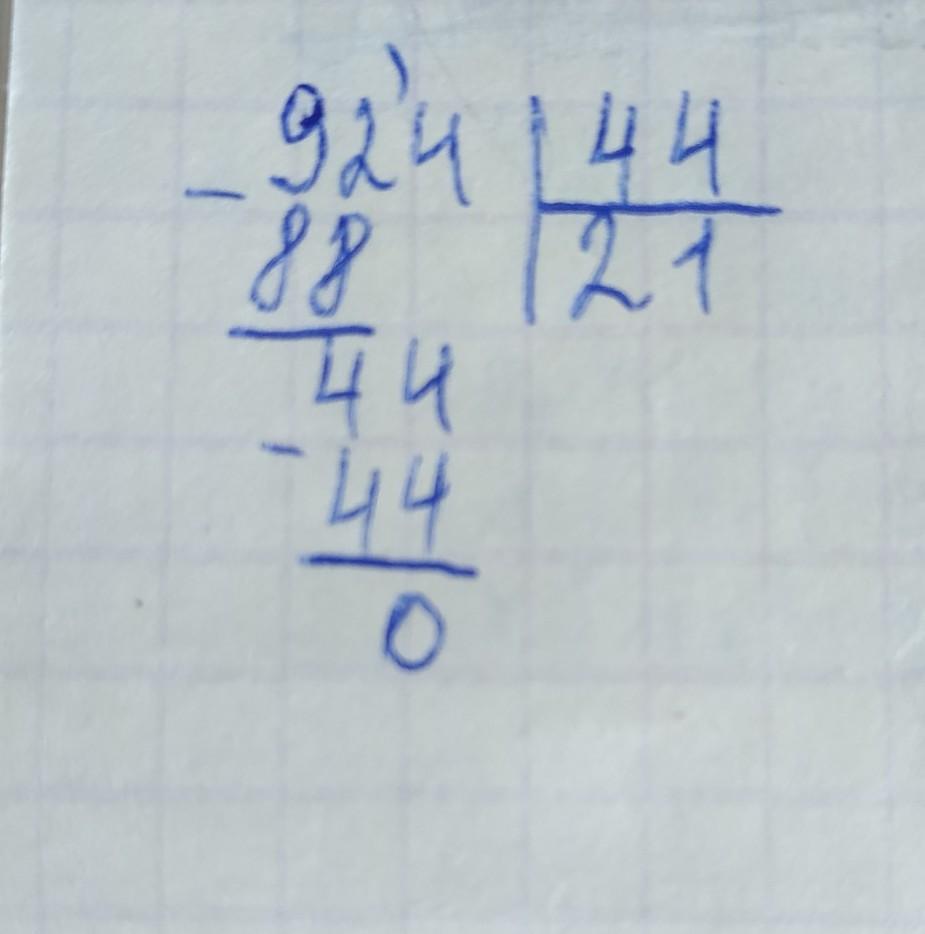 - 924 | 44
88 | 21
44
- 44
0